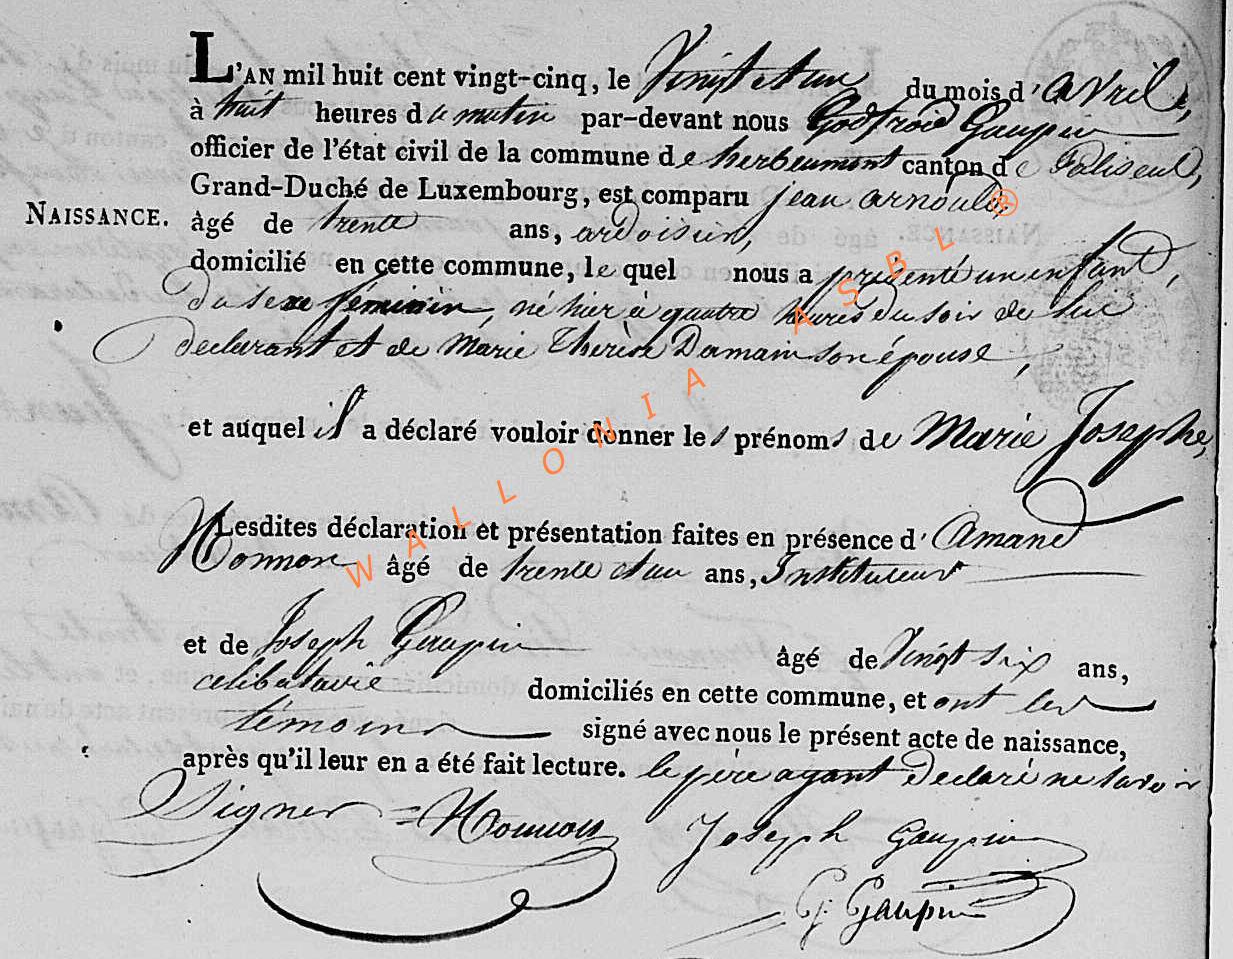 L'AN mil huit cent vingt-cinq, le Vingt et un du mois d'avril,
à huit heures du matin par-devant nous Godfroid Gaupin
officier de l'état civil de la commune de herbeumont canton de Paliseul,
Grand-Duché de Luxembourg, est comparu jean arnould,
NAISSANCE. âgé de trente ans, ardoisier,
domicilié en cette commune, lequel nous a présenté un enfant,
du sexe féminin, né hier à quatre heures du soir de lui
declarant et de Marie Thérèse Damain son épouse,
et auquel il a déclaré vouloir donner les prénoms de Marie Josephe,
Lesdites déclaration et présentation faites en présence d'Amand
Honnon âgé de trente et un ans, Instituteur
et de Joseph Gaupin âgé de Vingt six ans,
celibataire domiciliés en cette commune, et ont les
témoins signé avec nous le présent acte de naissance,
après qu'il leur en a été fait lecture. le père ayant declaré ne savoir
Signer = Honnon Joseph Gaupin
G. Gaupin
WALLONIA ASBL ®